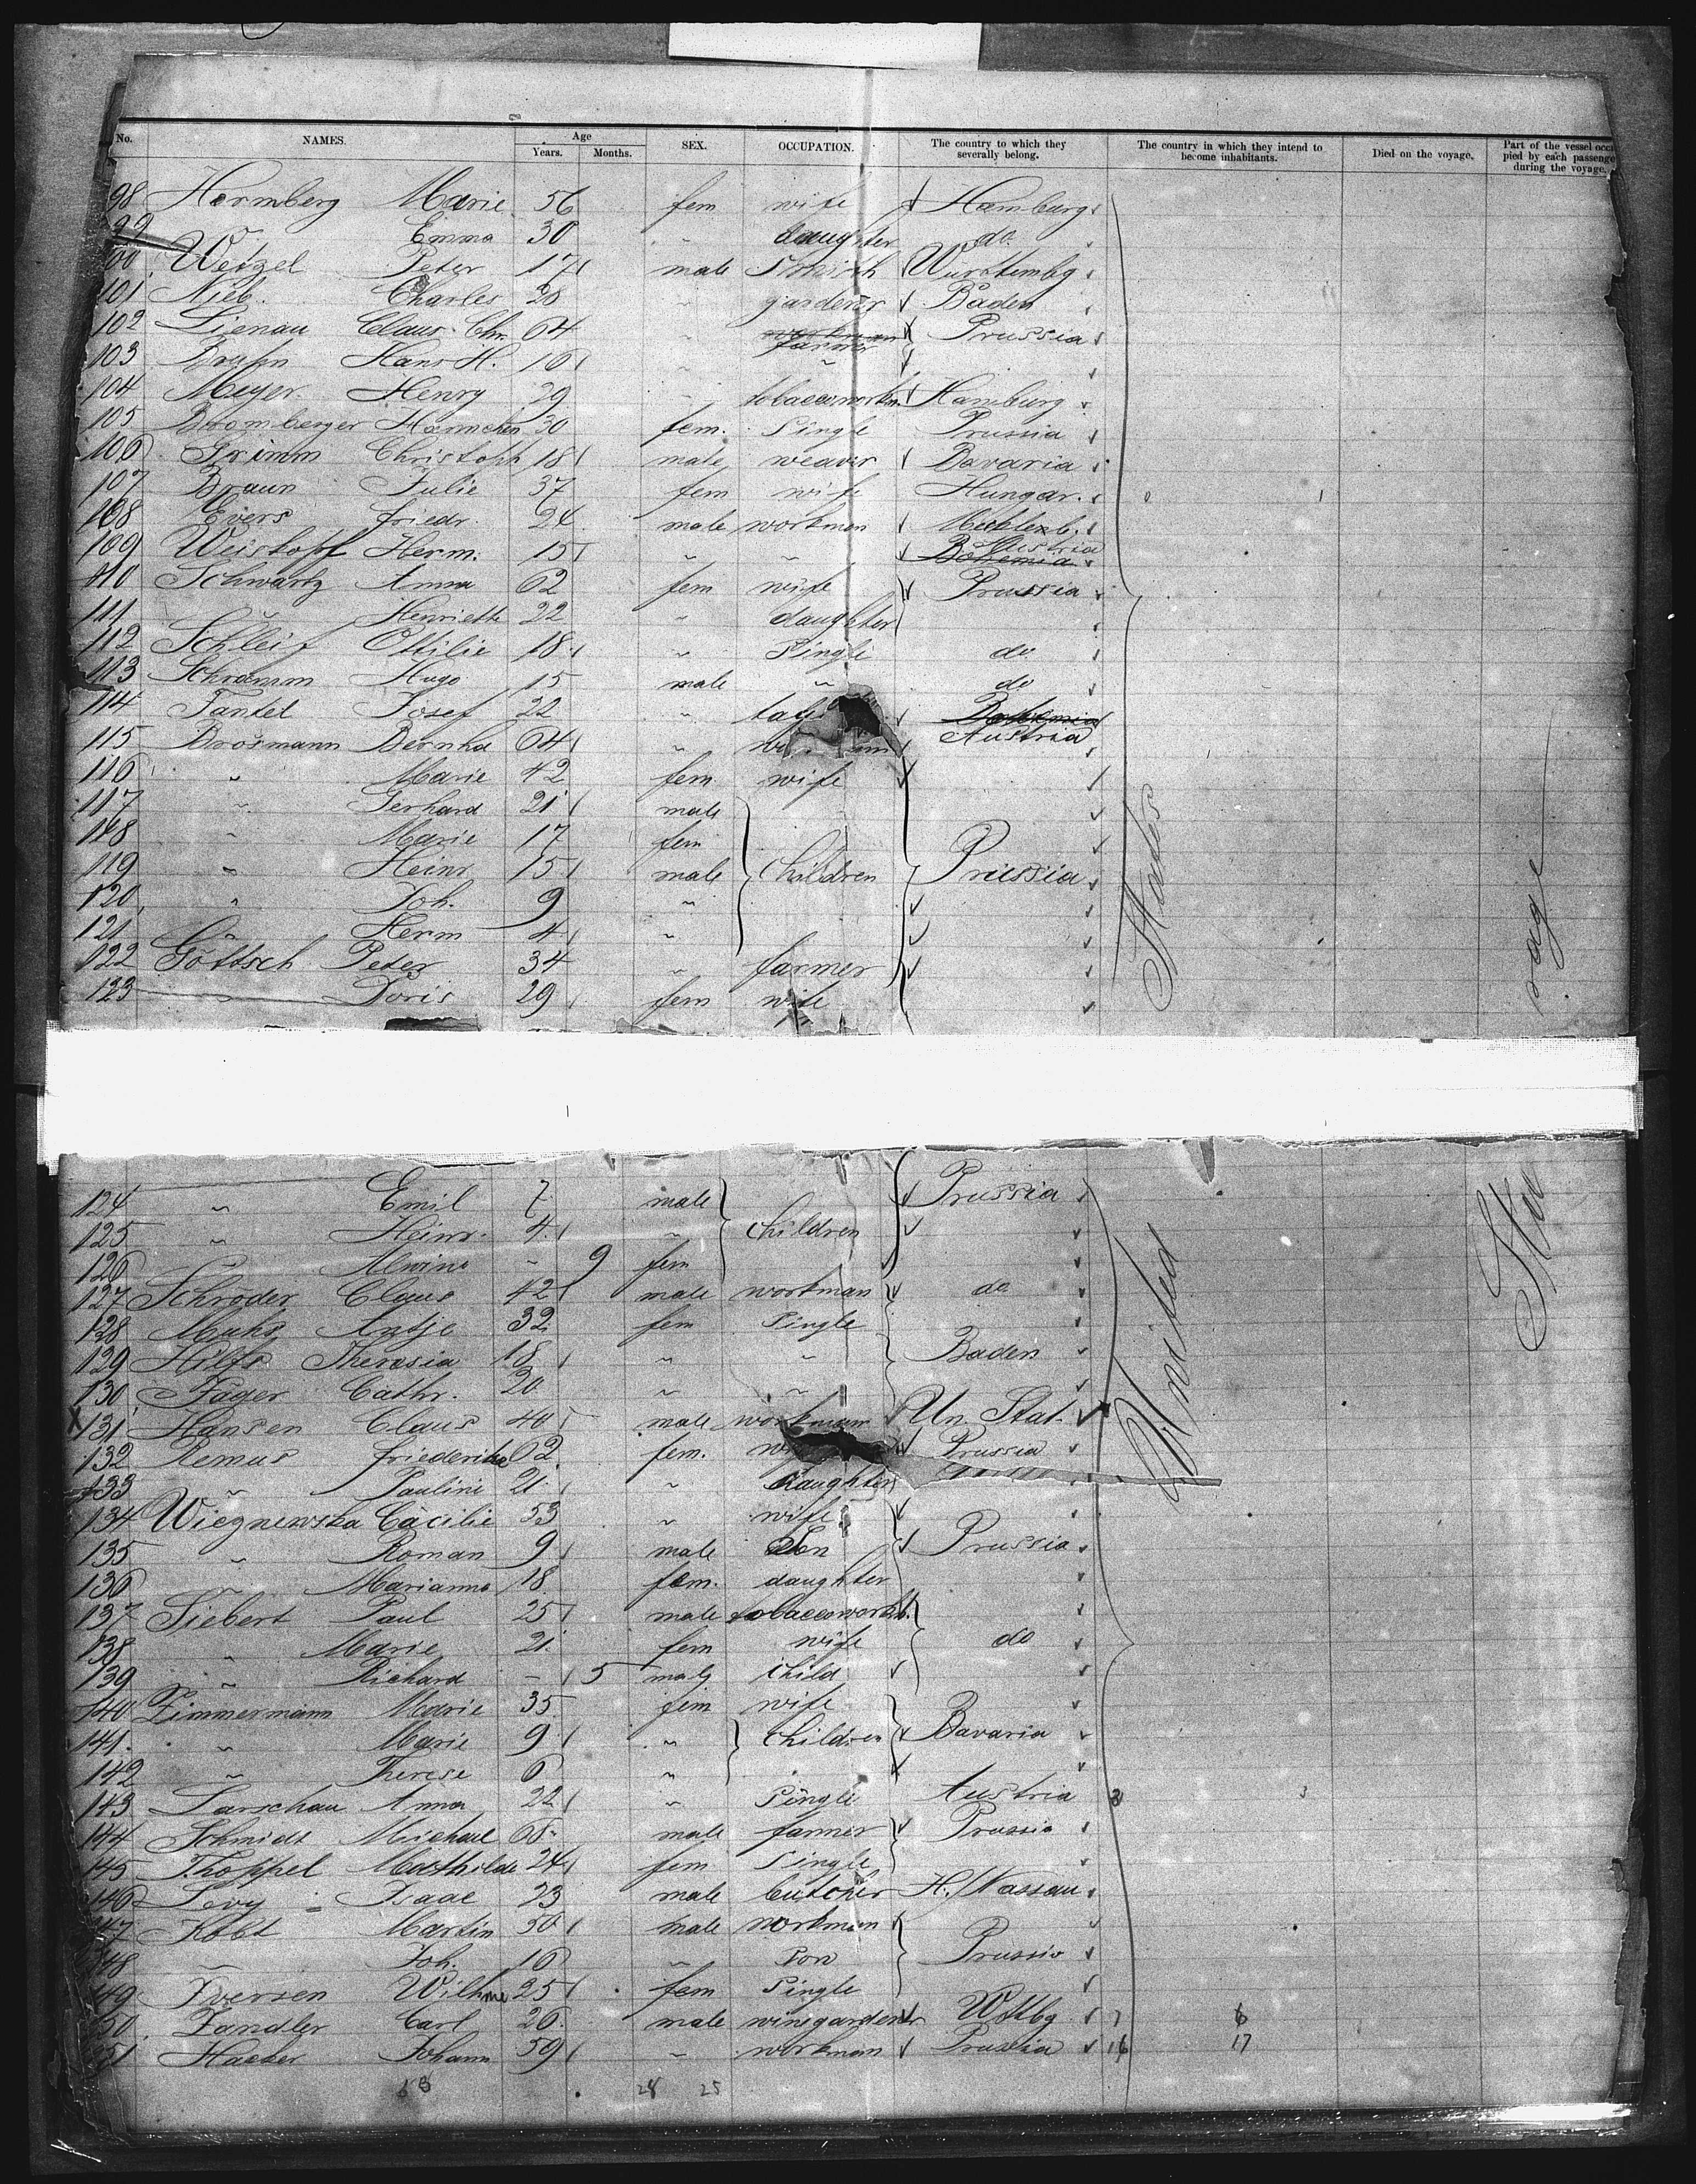 No. NAMES. Age Years. Months. SEX. OCCUPATION. The country to which they severally belong. The country in which they intend to become inhabitants. Died on the voyage. Part of the vessel occupied by each passenger during the voyage.
98 Hermberg Marie 56 fem wife Hamburg
99 " Emma 30 " daughter do.
100 Wetzel Peter 17 male Smith Wurttembg
101 Nieb. Charles 28 " gardener Baden
102 Lienau Claus Chr. 64 " workman farmer Prussia
103 Bruhn Hans H. 16 " "
104 Meyer Henry 29 " tobaccoworkm. Hamburg
105 Bromberger Hannchen 30 fem. Single Prussia
106 Grimm Christoph 18 male weaver Bavaria
107 Braun Julie 37 fem wife Hungar.
108 Evers Friedr. 24 male workman Mecklenb.
109 Weiskopf Herm. 15 " " Bohemia Austria
110 Schwartz Anna 62 fem wife Prussia
111 " Henriette 22 " daughter
112 Schleif Ottilie 18 " Single do
113 Schramm Hugo 15 male " do
114 Tantel Josef 22 " Bohemia Austria
115 Brosmann Bernhd 64 "
116 " Marie 42 fem wife
117 " Gerhard 21 male
118 " Marie 17 fem
119 " Heinr 15 male Children Prussia
120 " Joh. 9 "
121 " Herm 4 "
122 Göttsch Peter 34 " farmer
123 " Doris 29 fem wife
States
124 " Emil 7 male Prussia
125 " Heinr. 4 " Children
126 " Alwine - 9 fem
127 Schröder Claus 42 male workman do
128 Muhs Antje 32 fem Single
129 Hilfs Theresia 18 " " Baden
130 Jäger Cathr. 20 " "
X 131 Hansen Claus 40 male workman Un. Stat.
132 Remus Friederike 62 fem. Prussia
133 " Pauline 21 " daughter
134 Wiegnewska Cäcilie 53 " wife
135 " Roman 9 male Son Prussia
136 " Marianna 18 fem. daughter
137 Siebert Paul 25 male tobaccoworkm.
138 " Marie 21 fem wife do
139 " Richard - 5 male Child
140 Zimmermann Marie 35 fem wife
141 " Marie 9 " Children Bavaria
142 " Therese 6 "
143 Larschau Anna 22 " Single Austria 3
144 Schmidt Michael 68 male farmer Prussia
145 Thoppel Mathilde 24 fem Single
146 Levy Isaac 23 male butcher H./Nassau
147 Kobt Martin 50 male workman
148 " Joh. 16 " Son Prussia
149 Iversen Wilhme 25 fem Single
150 Zandler Carl 26 male winegardener Wttbg 7 6
151 Hacker Johann 59 " workman Prussia 16 17
United
53 28 25